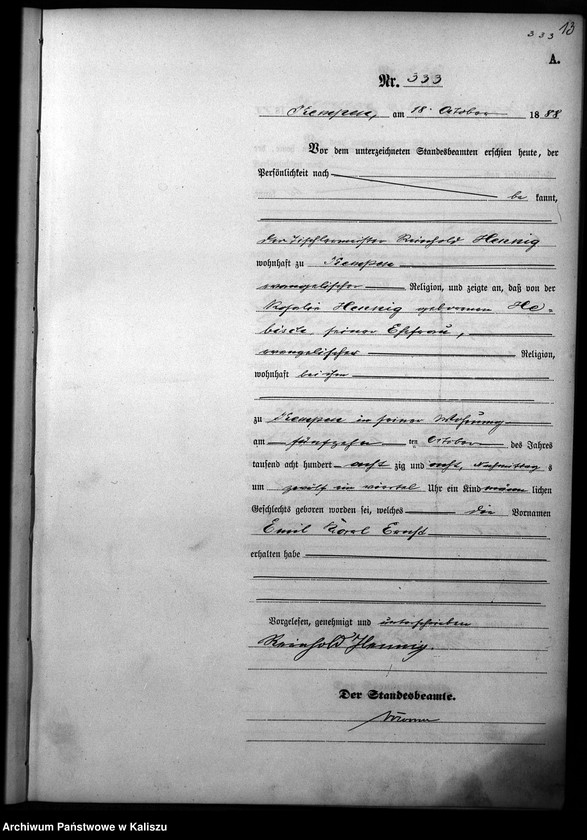 13
333
A.
Nr. 333
Kempen, am 18. October 1888
Vor dem unterzeichneten Standesbeamten erschien heute, der
Persönlichkeit nach
be kannt,
der Tischlermeister Reinhold Hennig
wohnhaft zu Kempen
evangelischer Religion, und zeigte an, daß von der
Rosalie Hennig geborenen He-
seiner Ehefrau,
evangelischer Religion,
wohnhaft bei ihm
zu Kempen in seiner Wohnung
am fünfzehn ten October des Jahres
tausend acht hundert acht zig und acht, Nachmittag s
um zwölf ein viertel Uhr ein Kind männ lichen
Geschlechts geboren worden sei, welches die Vornamen
Emil Karl Ernst
erhalten habe
Vorgelesen, genehmigt und unterschrieben
Reinhold Hennig.
Der Standesbeamte.
Archiwum Państwowe w Kaliszu